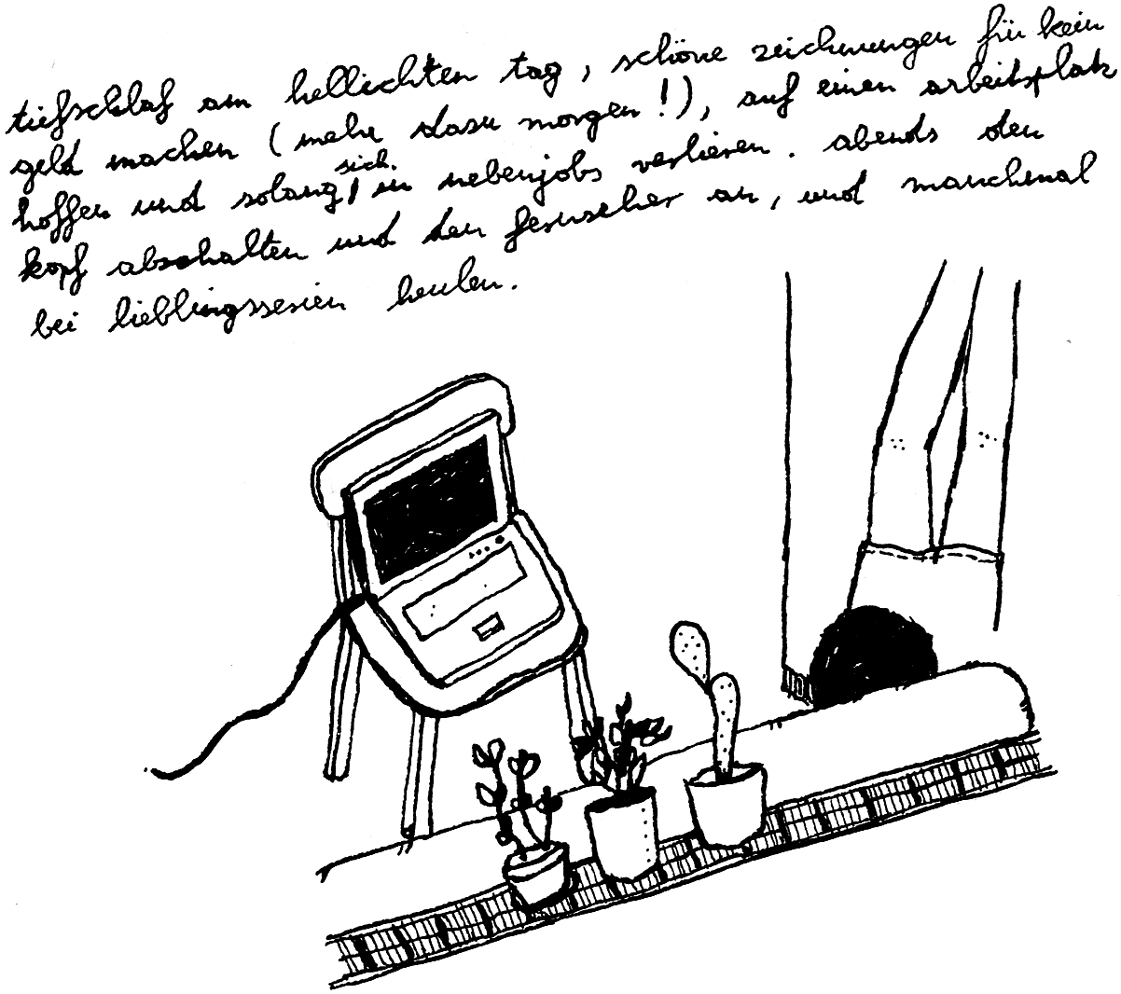 tiefschlaf am hellichten tag, schöne zeichnungen für kein
geld machen (mehr dazu morgen!), auf einen arbeitsplatz
hoffen und solang sich in nebenjobs verlieren. abends den
kopf abschalten und den fernseher an, und manchmal
bei lieblingsserien heulen.